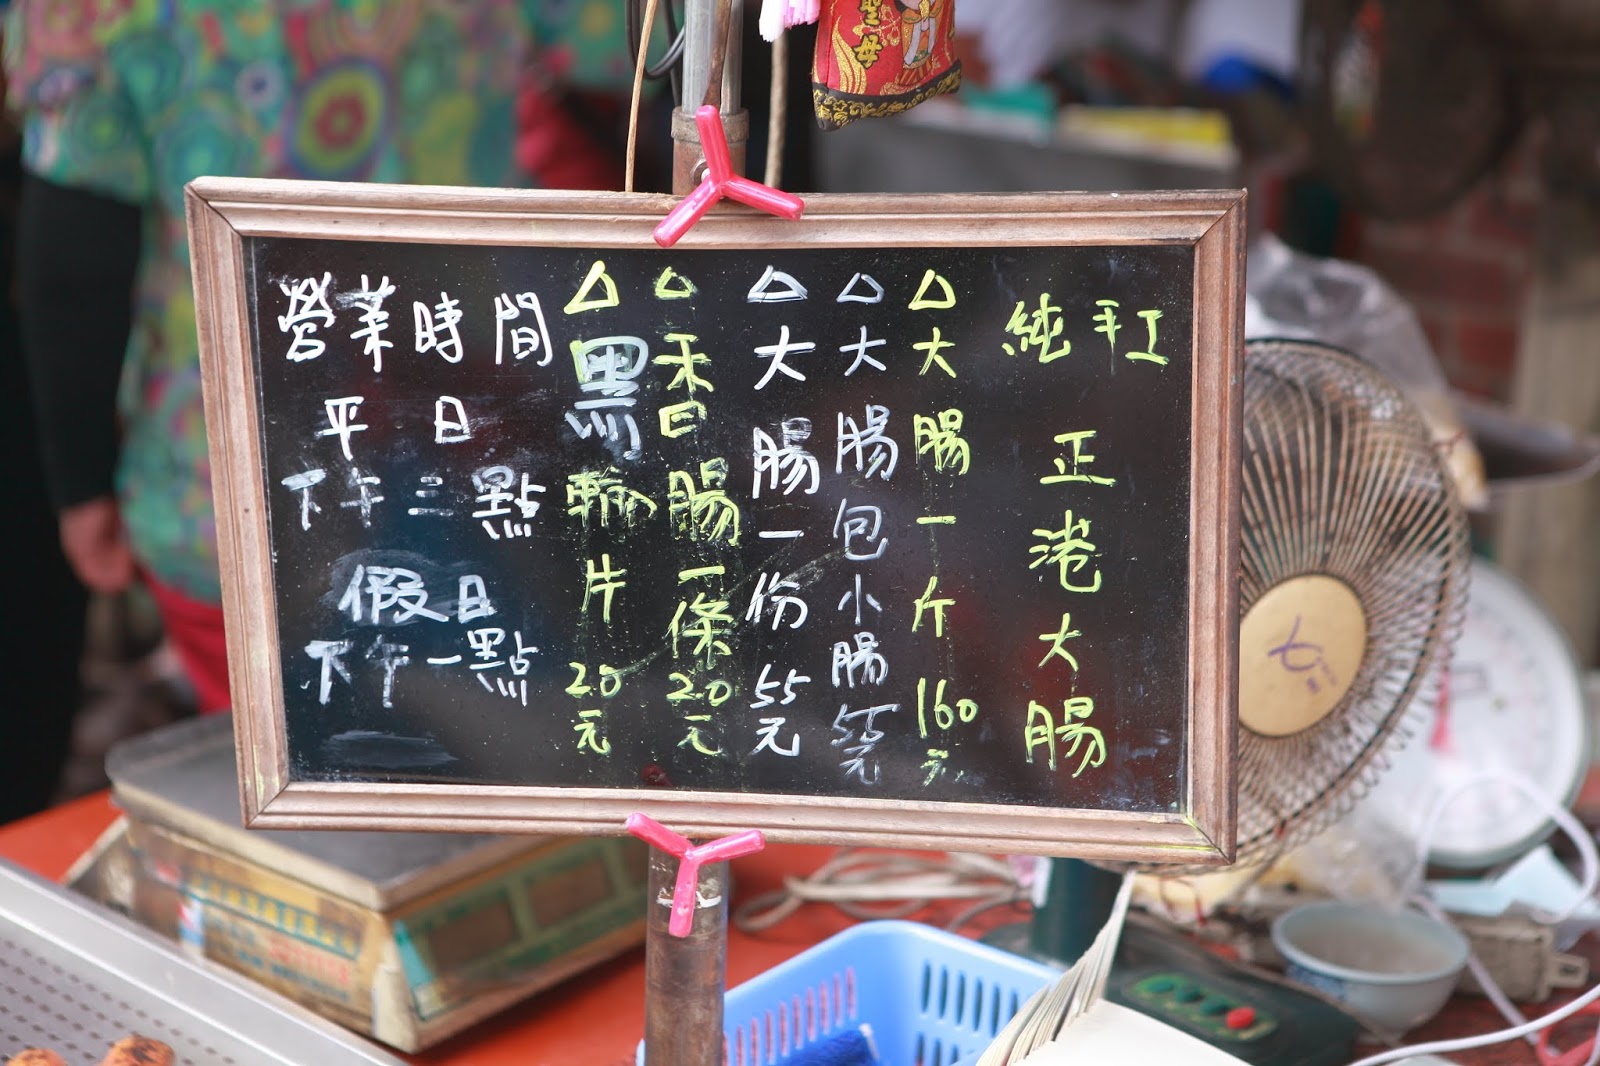 純手工
正港大腸
△大腸一斤160元
△大腸包小腸55元
△大腸一份55元
△香腸一條20元
△黑輪片20元
營業時間
平日
下午三點
假日
下午一點
聖母